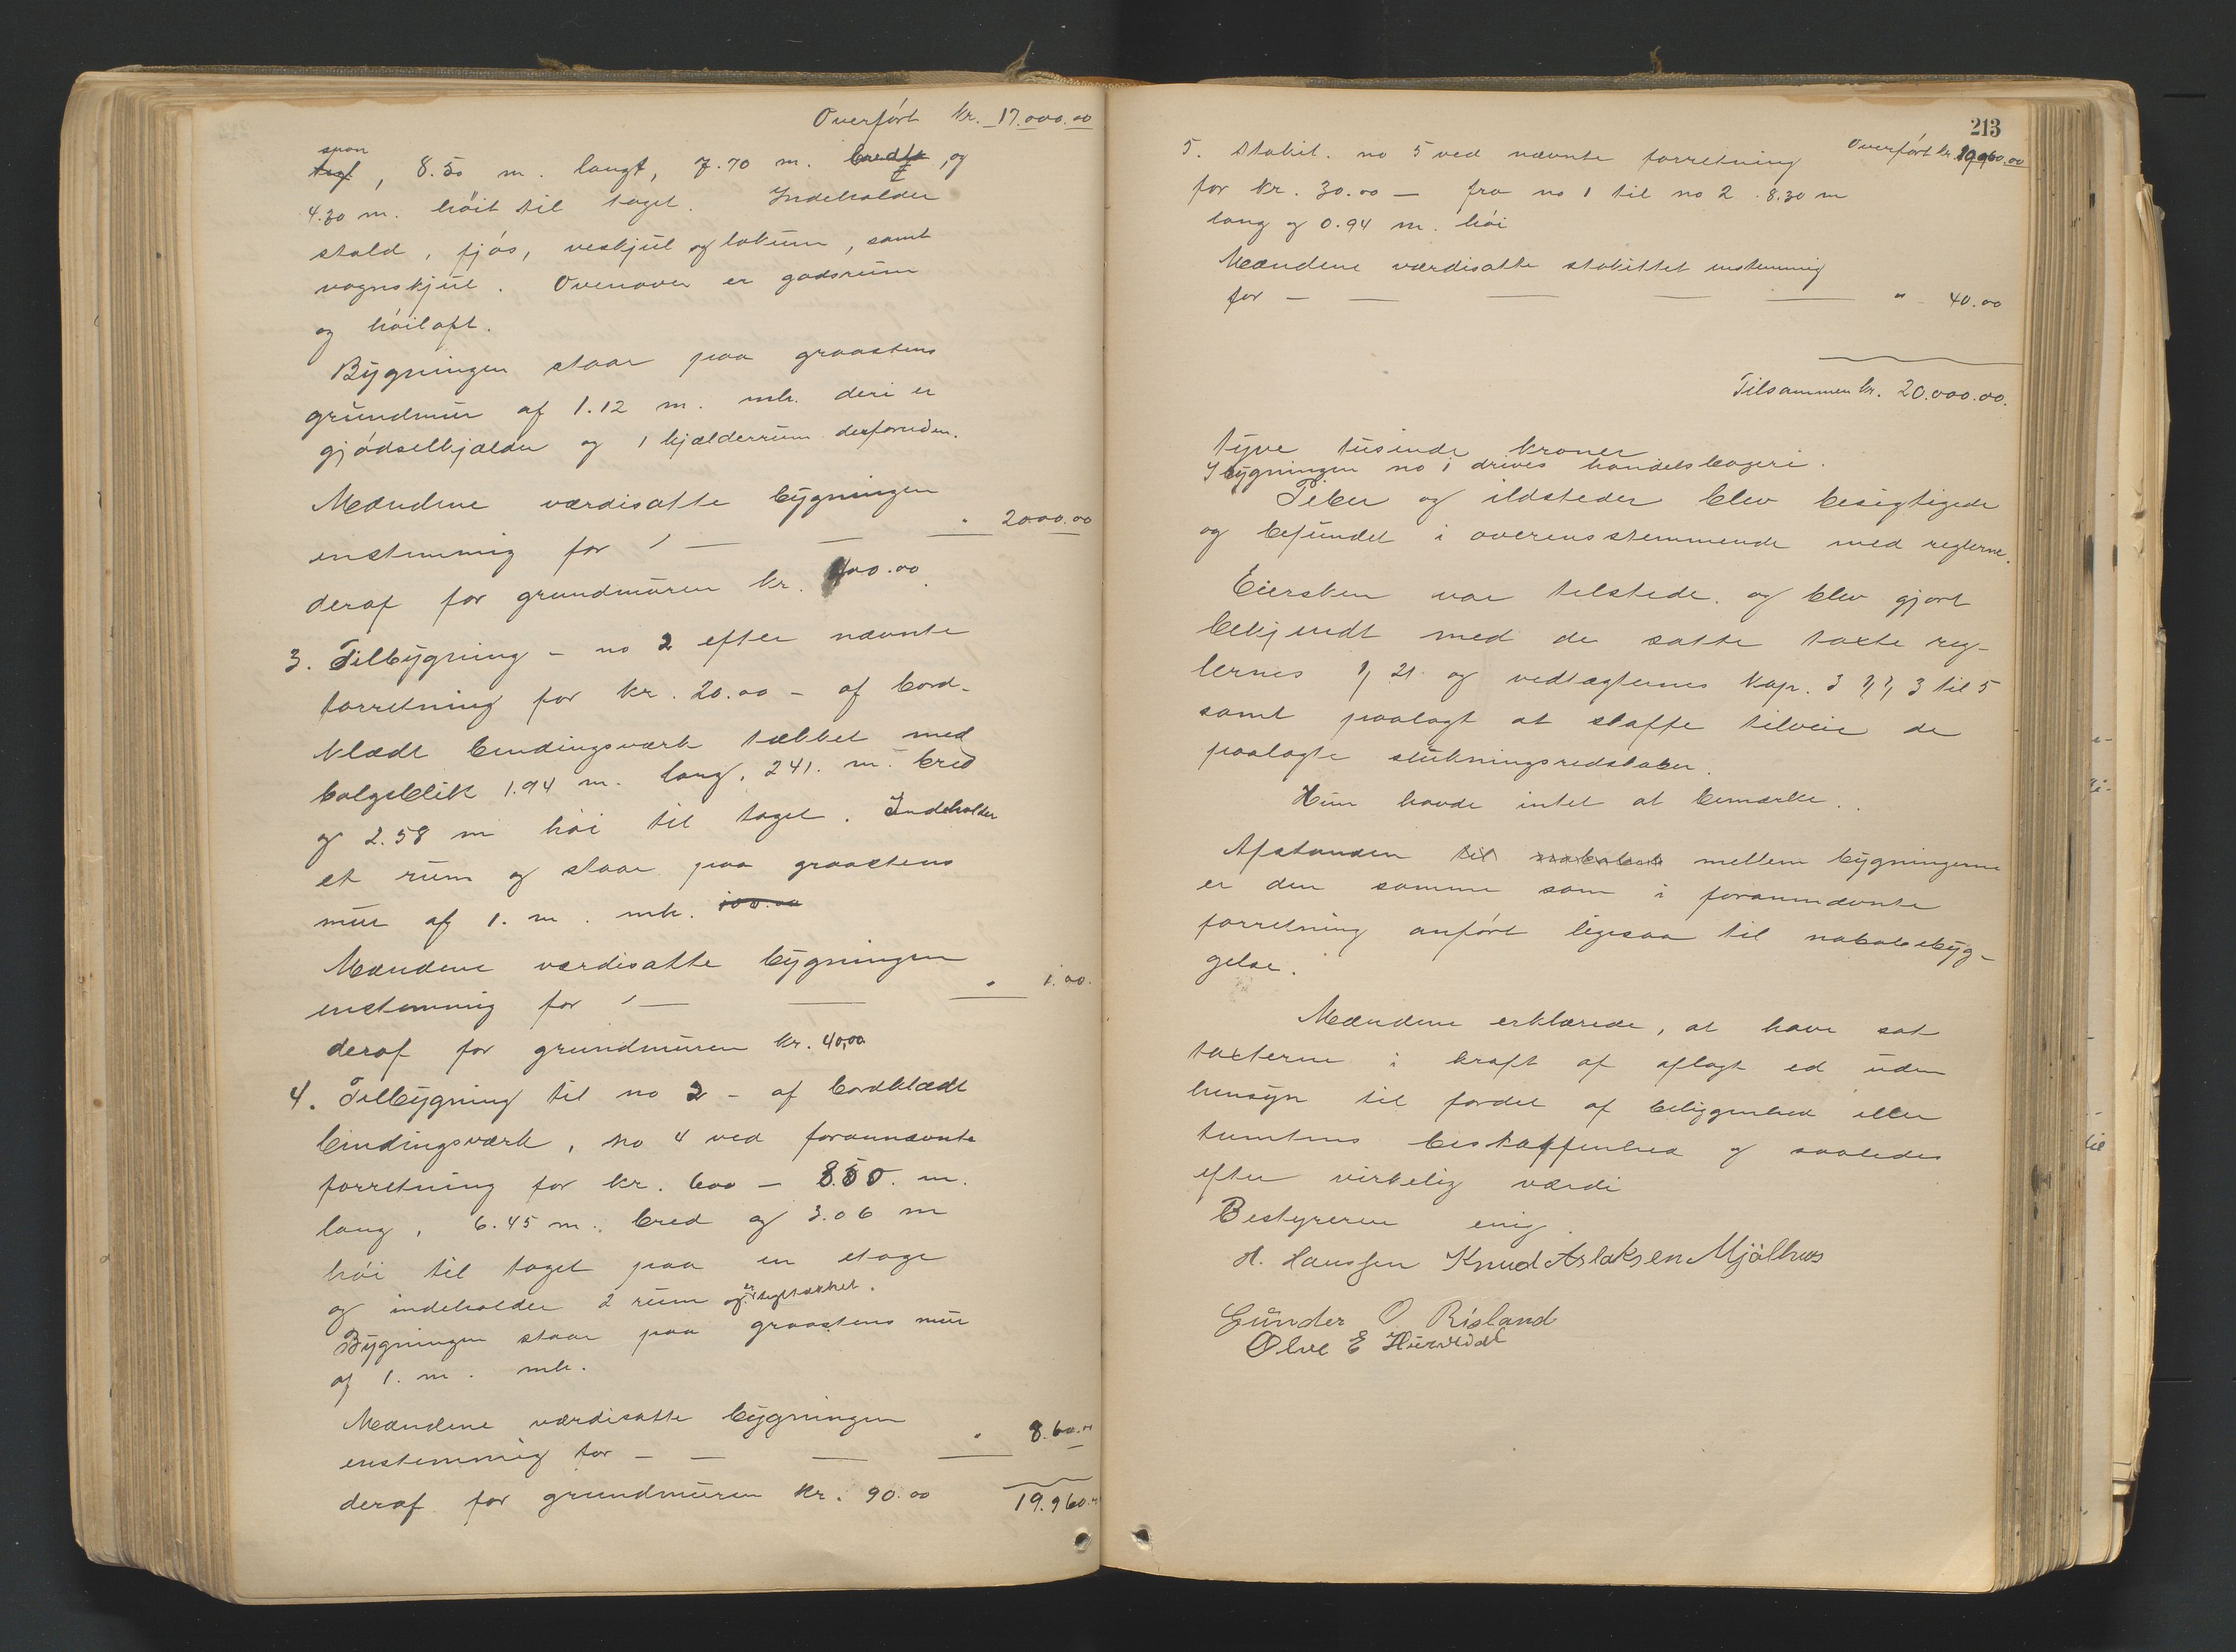 Overført kr. 17.000.00
spon
tegl, 8.50 m. langt, 7.70 m. bredt, og
4.30 m. høit til taget. Indeholder
stald, fjøs, veskjul og lokum, samt
vognskjul. Ovenover er godsrum
og høiloft.
Bygningen staar paa graastens
grundmur af 1.12 m. mh. deri er
gjødselkjælder og 1 kjælderrum desforuden.
Mændene værdisatte bygningen
enstemmig for — — — " 2000.00
deraf for grundmuren kr. 400.00
3. Tilbygning - no 2 efter nævnte
forretning for kr. 20.00 - af bord-
klædt bindingsværk tækket med
bølgeblik 1.94 m. lang, 2.41. m. bred
og 2.58 m høi til taget. Indeholder
et rum og staar paa graastens
mur af 1. m. mh. 100.00
Mændene værdisatte bygningen
enstemmig for — — — " 1.00.
deraf for grundmuren kr. 40,00
4. Tilbygning til no 2 - af bordklædt
bindingsværk, no 4 ved forannævnte
forretning for kr. 600 — 8.50. m.
lang, 6.45 m. bred og 3.06 m
høi til taget paa en etage
og indeholder 2 rum og er tegltækket.
Bygningen staar paa graastens mur
af 1. m. mh.
Mændene værdisatte bygningen
enstemmig for — — — — " 8.60.00
deraf for grundmuren kr. 90.00 19.960.00
213
Overført kr. 19.960.00
5. Stakit. no 5 ved nævnte forretning
for kr. 30.00 — fra no 1 til no 2. 8.30 m
lang og 0.94 m. høi
Mændene værdisatte stakittet enstemmig
for — — — — — " 40.00
Tilsammen kr. 20.000.00.
tyve tusinde kroner
I bygningen no 1 drives handelsbageri.
Piber og ildsteder blev besigtigede
og befundet i overensstemmende med reglerne.
Eiersken var tilstede og blev gjort
bekjendt med de satte taxte reg-
lernes § 21 og vedtægternes Kap. 3 §§ 3 til 5
samt paalagt at skaffe tilveie de
paalagte slukningsredskaber.
Hun havde intet at bemærke.
Afstanden til mellem bygningerne
er den samme som i forannævnte
forretning anført ligesaa til nabobebyg-
gelse.
Mændene erklærede, at have sat
taxterne i kraft af aflagt ed uden
hensyn til fordel af beliggenhed eller
tomtens beskaffenhed og saaledes
efter virkelig værdi
Bestyreren enig.
H. Hanssen Knud Aslaksen Mjålhus
Gunder O Risland
Olve E Hureidal